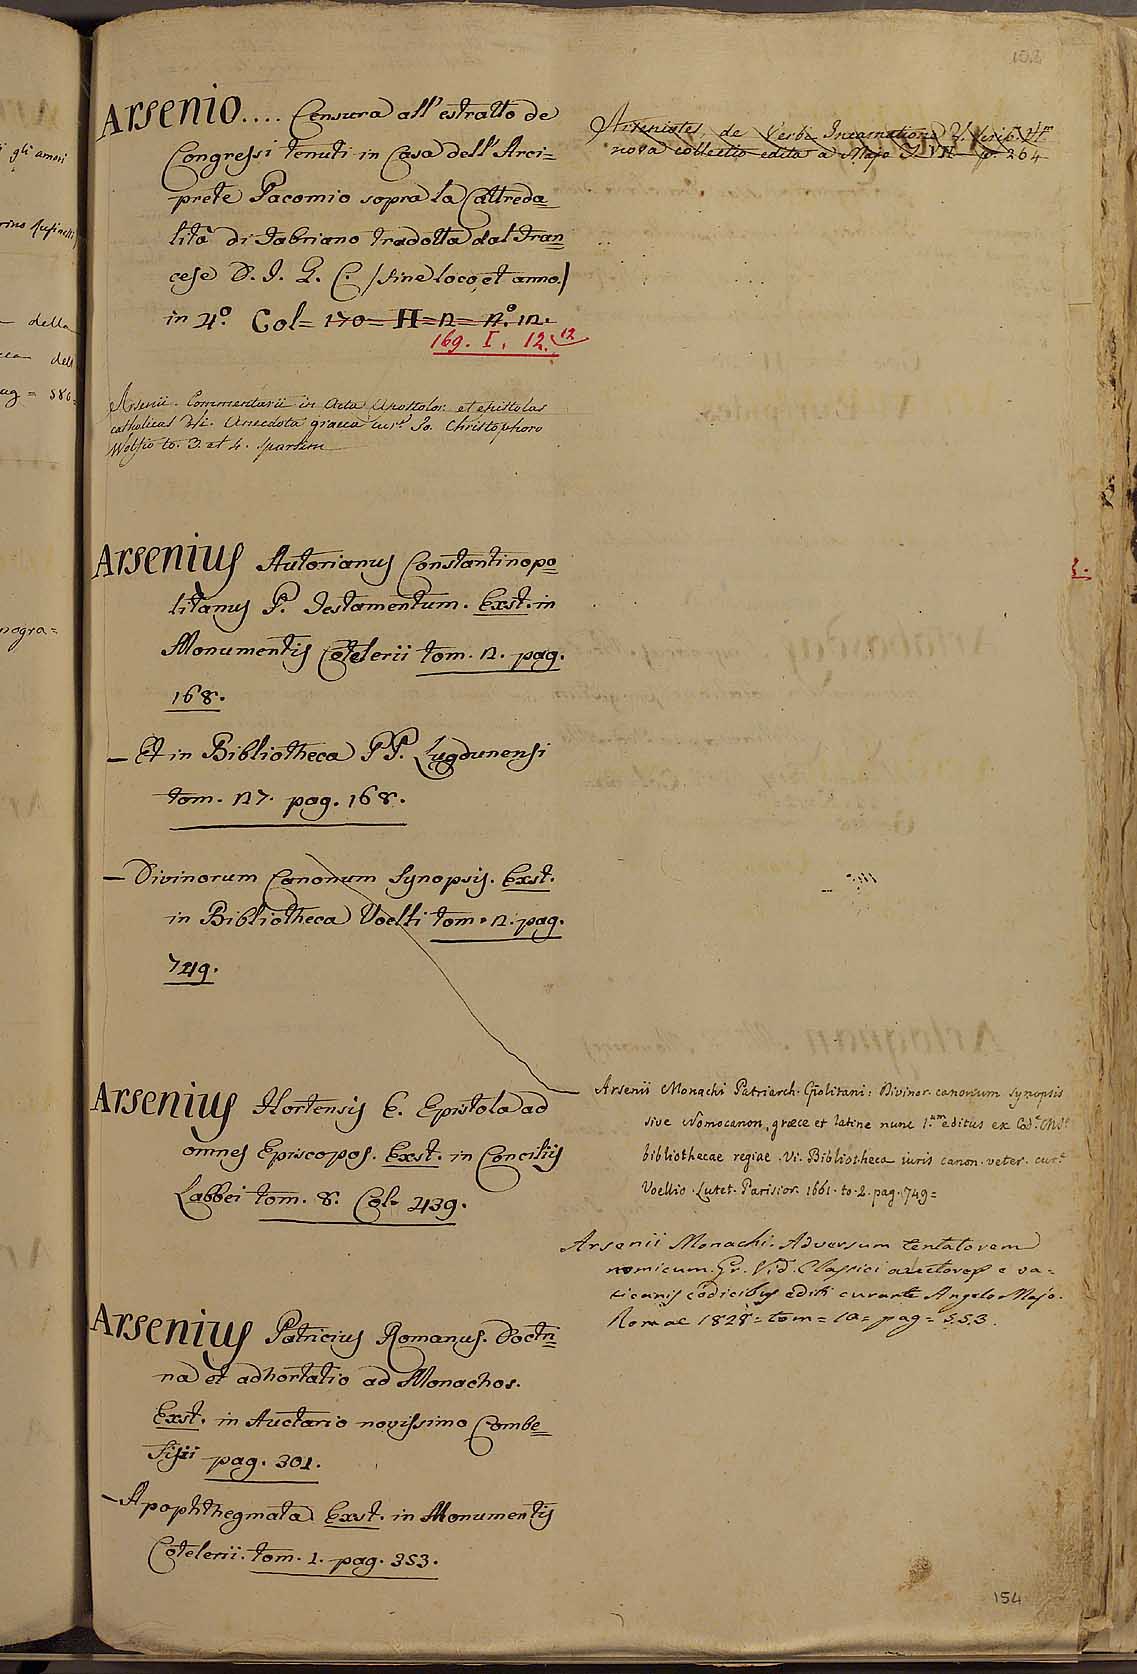 102
i gli amori
rino Rufinelli
della
dell
ag = 586=
nogra=
Arsenio.... Censura all'estratto de
Congressi tenuti in Casa dell'Arci=
prete Pacomio sopra la Cattreda=
lità di Fabriano tradotta dal Fran=
cese D. J. G. C. /sine loco, et anno./
in 4.º Col= 170= H= 12= N.º 12.
169. I. 12. 12
Arsenii. Commentarii in Acta Apostolor. et epistolas
catholicas Vi. Anecdota graeca cur.te Jo. Christophoro
Wolfio to. 3. et 4. sparsim
Arsenius Autorianus Constantinopo=
litanus P. Testamentum. Exst. in
Monumentis Cotelerii tom. 2. pag.
168.
— Et in Bibliotheca PP. Lugdunensi
tom. 27. pag. 168.
— Divinorum Canonum Synopsis. Exst.
in Bibliotheca Voelli tom. 2. pag.
749.
Arsenius Hortensis E. Epistola ad
omnes Episcopos. Exst. in Conciliis
Labbei tom. 8. Col. 439.
Arsenius Patricius Romanus. Doctri=
na et adhortatio ad Monachos.
Exst. in Auctario novissimo Combe=
fisii pag. 301.
— Apophthegmata. Exst. in Monumentis
Cotelerii. tom. 1. pag. 353.
Arseniotes, de Verbi Incarnatione V. Scrip. Vet.
nova collectio edita a Majo T. VII p. 264
Arsenii Monachi Patriarch. Cpolitani. Divinor. canonum synopsis
sive Nomocanon, græce et latine nunc 1.um editus ex Cod.e Ms.
bibliothecae regiae. Vi. Bibliotheca iuris canon. veter. cur.te
Voellio. Lutet. Parisior. 1661. to. 2. pag. 749=
Arsenii Monachi. Adversum tentatorem
nomicum. Gr. Vid. Classici auctores e va=
ticanis codicibus editi curante Angelo Majo.
Romae 1828= tom= 10= pag= 553.
154